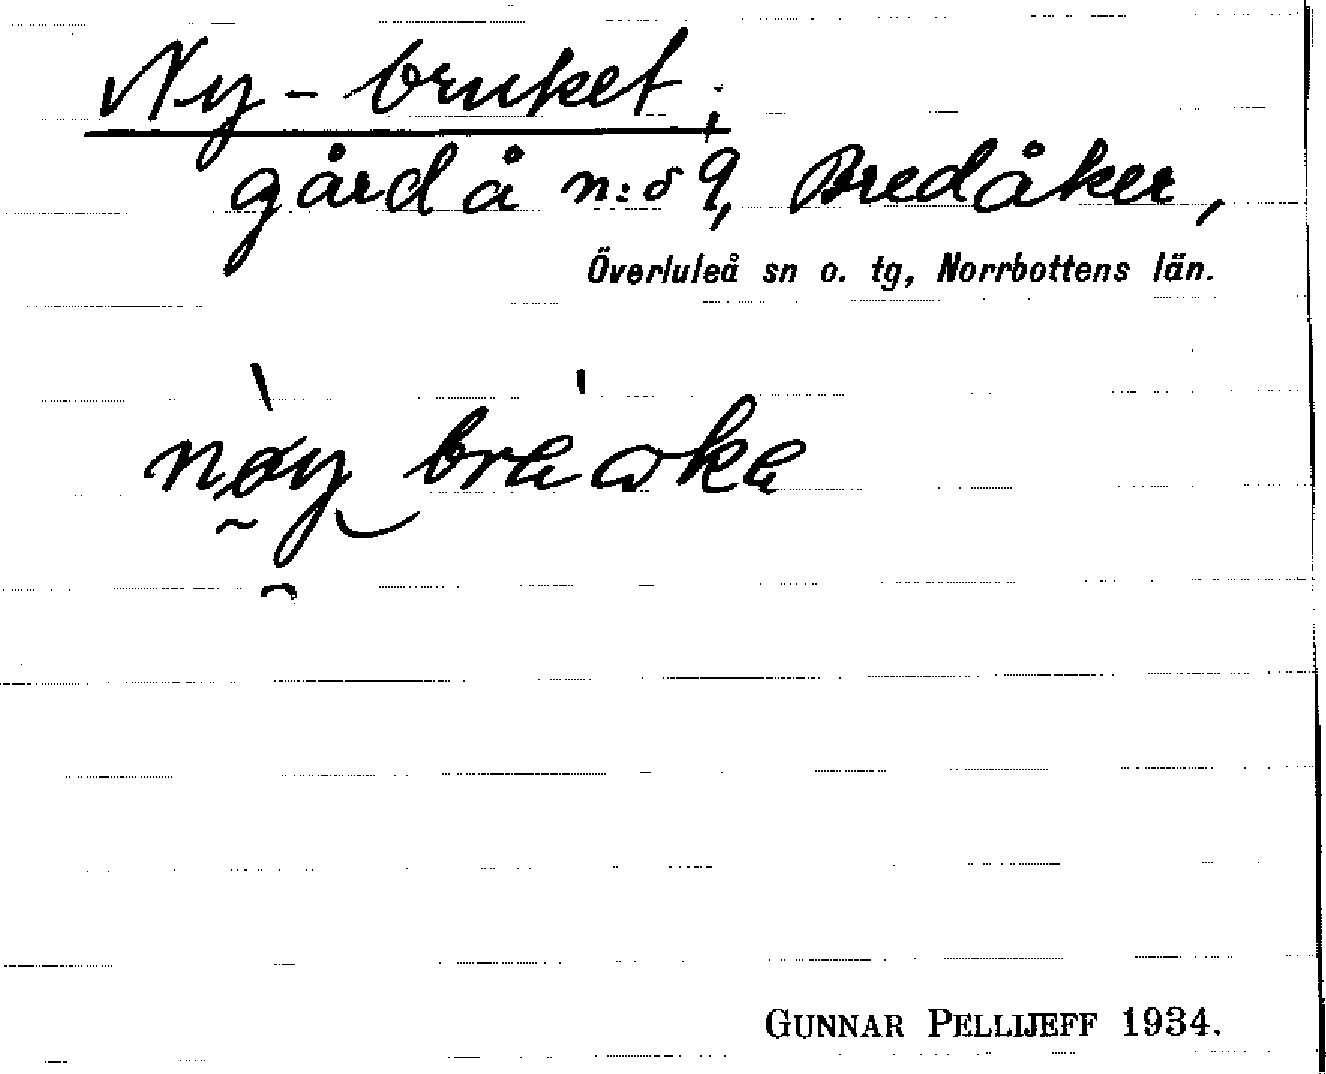 Ny-bruket;
gård å n:o 9, Bredåker,
Överluleå sn o. tg, Norrbottens län.
GUNNAR PELLIJEFF 1934.